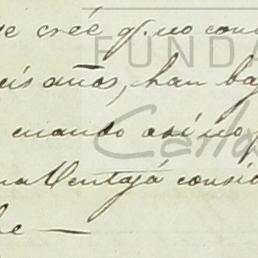 se creé q. no con
eis años, han ba
cuando así no p
na Ventajá consid
he —
FUNDA
Carlos